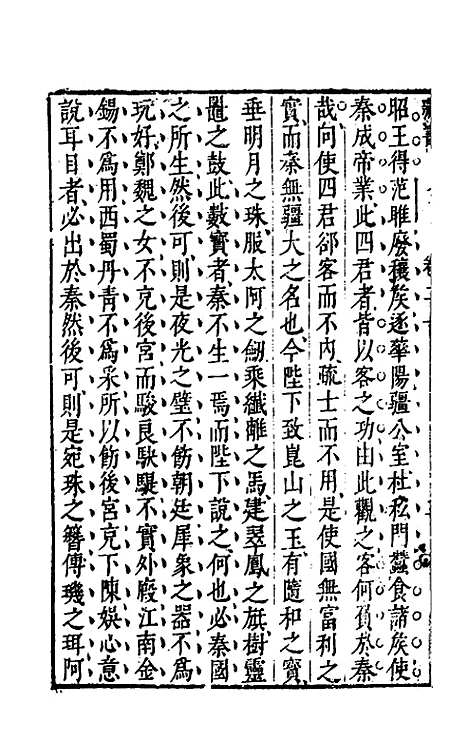 昭王得范雎廢穰矦逐華陽疆公室杜私門蠶食諸矦使
秦成帝業此四君者皆以客之功由此觀之客何負於秦
哉向使四君郤客而不内疏士而不用是使國無富利之
實而秦無疆大之名也今陛下致崑山之玉有隨和之寶
垂明月之珠服太阿之劒乗纖離之馬建翠鳳之旗樹靈
鼉之鼓此數寳者秦不生一焉而陛下說之何也必秦國
之所生然後可則是夜光之璧不飾朝廷犀象之器不為
玩好鄭魏之女不充後宮而駿良駃騠不實外廐江南金
錫不為用西蜀丹青不為采所以飾後宮充下陳娛心意
說耳目者必出於秦然後可則是宛珠之簪傅璣之珥阿